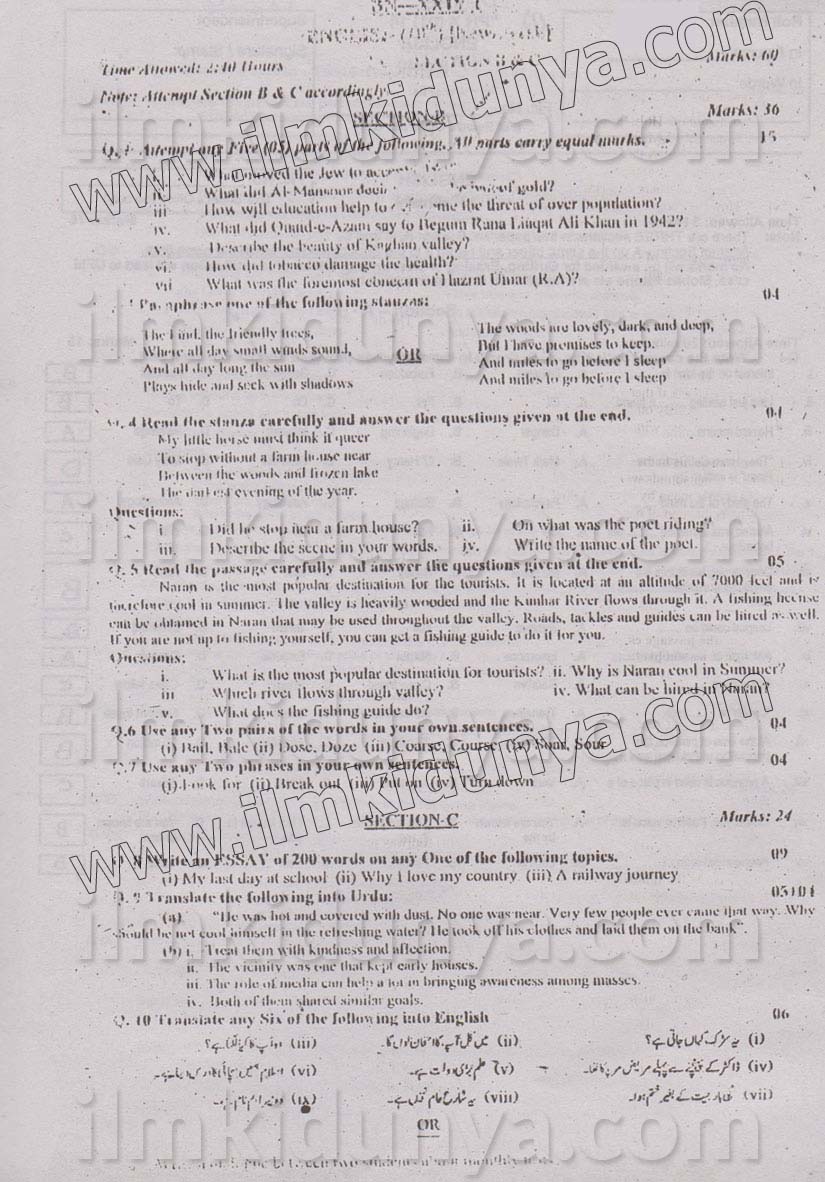 BN—XXIV I
ENGLISH
SECTION B & C
Time Allowed: 2:40 Hours
Marks: 60
Note: Attempt Section B & C accordingly
SECTION-B
Marks: 36
Q. Attempt any Five (05) parts of the following. All parts carry equal marks.
15
moved the Jew to accept
What did Al-Mansoor of gold?
iii How will education help to the threat of over population?
iv. What did Quaid-e-Azam say to Begum Rana Liaqat Ali Khan in 1942?
v. Describe the beauty of Kaghan valley?
vi. How did tobacco damage the health?
vii What was the foremost concern of Hazrat Umar (R.A)?
Paraphrase one of the following stanzas:
04
The kind, the friendly trees,
Where all day small winds sound,
And all day long the sun
Plays hide and seek with shadows
OR
The woods are lovely, dark, and deep,
But I have promises to keep.
And miles to go before I sleep
And miles to go before I sleep
Q. 4 Read the stanza carefully and answer the questions given at the end.
04
My little horse must think it queer
To stop without a farm house near
Between the woods and frozen lake
The darkest evening of the year.
Questions:
i Did he stop near a farm house? ii. On what was the poet riding?
iii. Describe the scene in your words. iv. Write the name of the poet.
Q. 5 Read the passage carefully and answer the questions given at the end.
05
Naran is the most popular destination for the tourists. It is located at an altitude of 7000 feet and is
therefore cool in summer. The valley is heavily wooded and the Kunhar River flows through it. A fishing license
can be obtained in Naran that may be used throughout the valley. Roads, tackles and guides can be hired as well.
If you are not up to fishing yourself, you can get a fishing guide to do it for you.
Questions:
i. What is the most popular destination for tourists? ii. Why is Naran cool in Summer?
iii Which river flows through valley? iv. What can be hired in Naran?
v. What does the fishing guide do?
Q.6 Use any Two pairs of the words in your own sentences.
04
(i) Bail, Bale (ii) Dose, Doze (iii) Coarse, Course (iv) Soar, Sour
Q.7 Use any Two phrases in your own sentences.
04
(i) Look for (ii) Break out (iii) Put on (iv) Turn down
SECTION-C
Marks: 24
Q. 8 Write an ESSAY of 200 words on any One of the following topics.
09
(i) My last day at school (ii) Why I love my country (iii) A railway journey
Q. 9 Translate the following into Urdu:
05+04
(a) "He was hot and covered with dust. No one was near. Very few people ever came that way. Why
should he not cool himself in the refreshing water? He took off his clothes and laid them on the bank".
(b) i. Treat them with kindness and affection.
ii. The vicinity was one that kept early houses.
iii. The role of media can help a lot in bringing awareness among masses.
iv. Both of them shared similar goals.
Q. 10 Translate any Six of the following into English
06
(i) یہ سڑک کہاں جاتی ہے؟ (ii) میں کل آپ کا امتحان لوں گا۔ (iii)
(iv) ڈاکٹر کے پہنچنے سے پہلے مریض مر چکا تھا۔ (v) علم بڑی دولت ہے۔ (vi) اسلام ہمیں سچائی کا درس دیتا ہے۔
(vii) کے بغیر ختم ہوا۔ (viii) یہ شارع عام نہیں ہے۔ (ix)
OR
two students about monthly
www.ilmkidunya.com
www.ilmkidunya.com
ilmkidunya.com
ilmkidunya.com
ilmkidunya.com
ilmkidunya.com
ilmkidunya.com
ilmkidunya.com